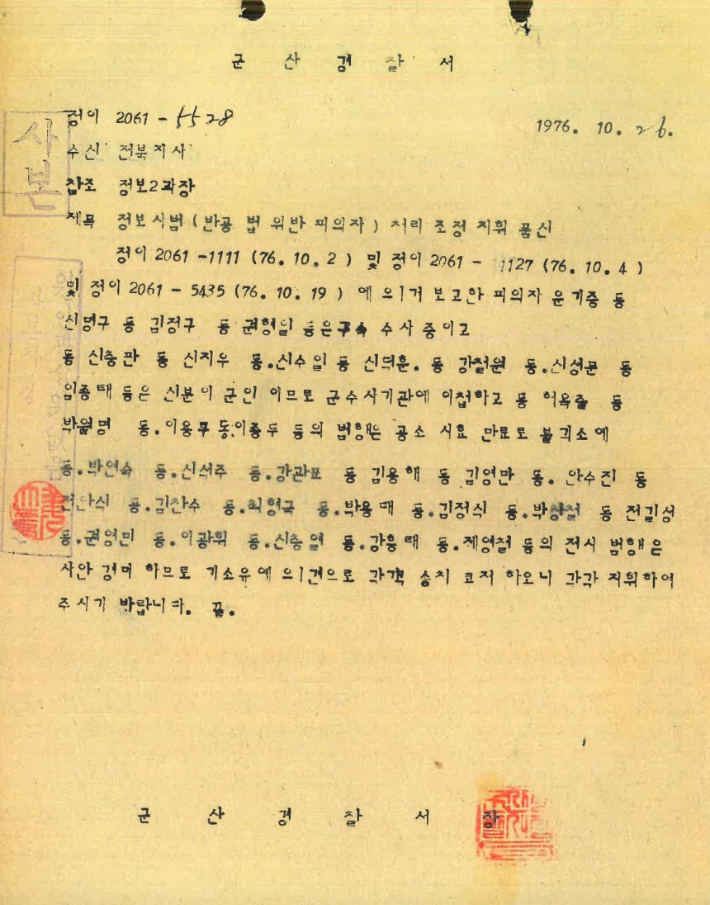 군 산 경 찰 서
정이 2061 - 5528
1976. 10. 26.
사본
수신 전북지사
참조 정보2과장
제목 정보사범 (반공 법 위반 피의자) 처리 조정 지휘 품신
정이 2061 -1111 (76. 10. 2) 및 정이 2061 - 1127 (76. 10. 4)
및 정이 2061 - 5435 (76. 10. 19) 에 의거 보고한 피의자 윤기중 동
신명구 동 김정구 동 권형일 등은 구속 수사 중이고
동 신충관 동 신지우 동.신수일 동 신덕훈. 동 강철원 동.신성문 동
임종태 등은 신분이 군인 이므로 군수사기관에 이첩하고 동 허옥출 동
박월명 동.이용구 동이중두 등의 범행은 공소 시효 만료로 불기소에
동.박연숙 동.신석주 동.강관표 동 김용해 동 김영만 동. 안수진 동
전안식 동.김찬수 동.최형국 동.박용태 동.김정식 동.박상철 동 전길성
동.권영민 동.이광휘 동.신충열 동.강흥태 동.제영철 등의 전시 범행은
사안 경미 하므로 기소유예 의견으로 각각 송치 코저 하오니 각각 지휘하여
주시기 바랍니다. 끝.
군 산 경 찰 서 장